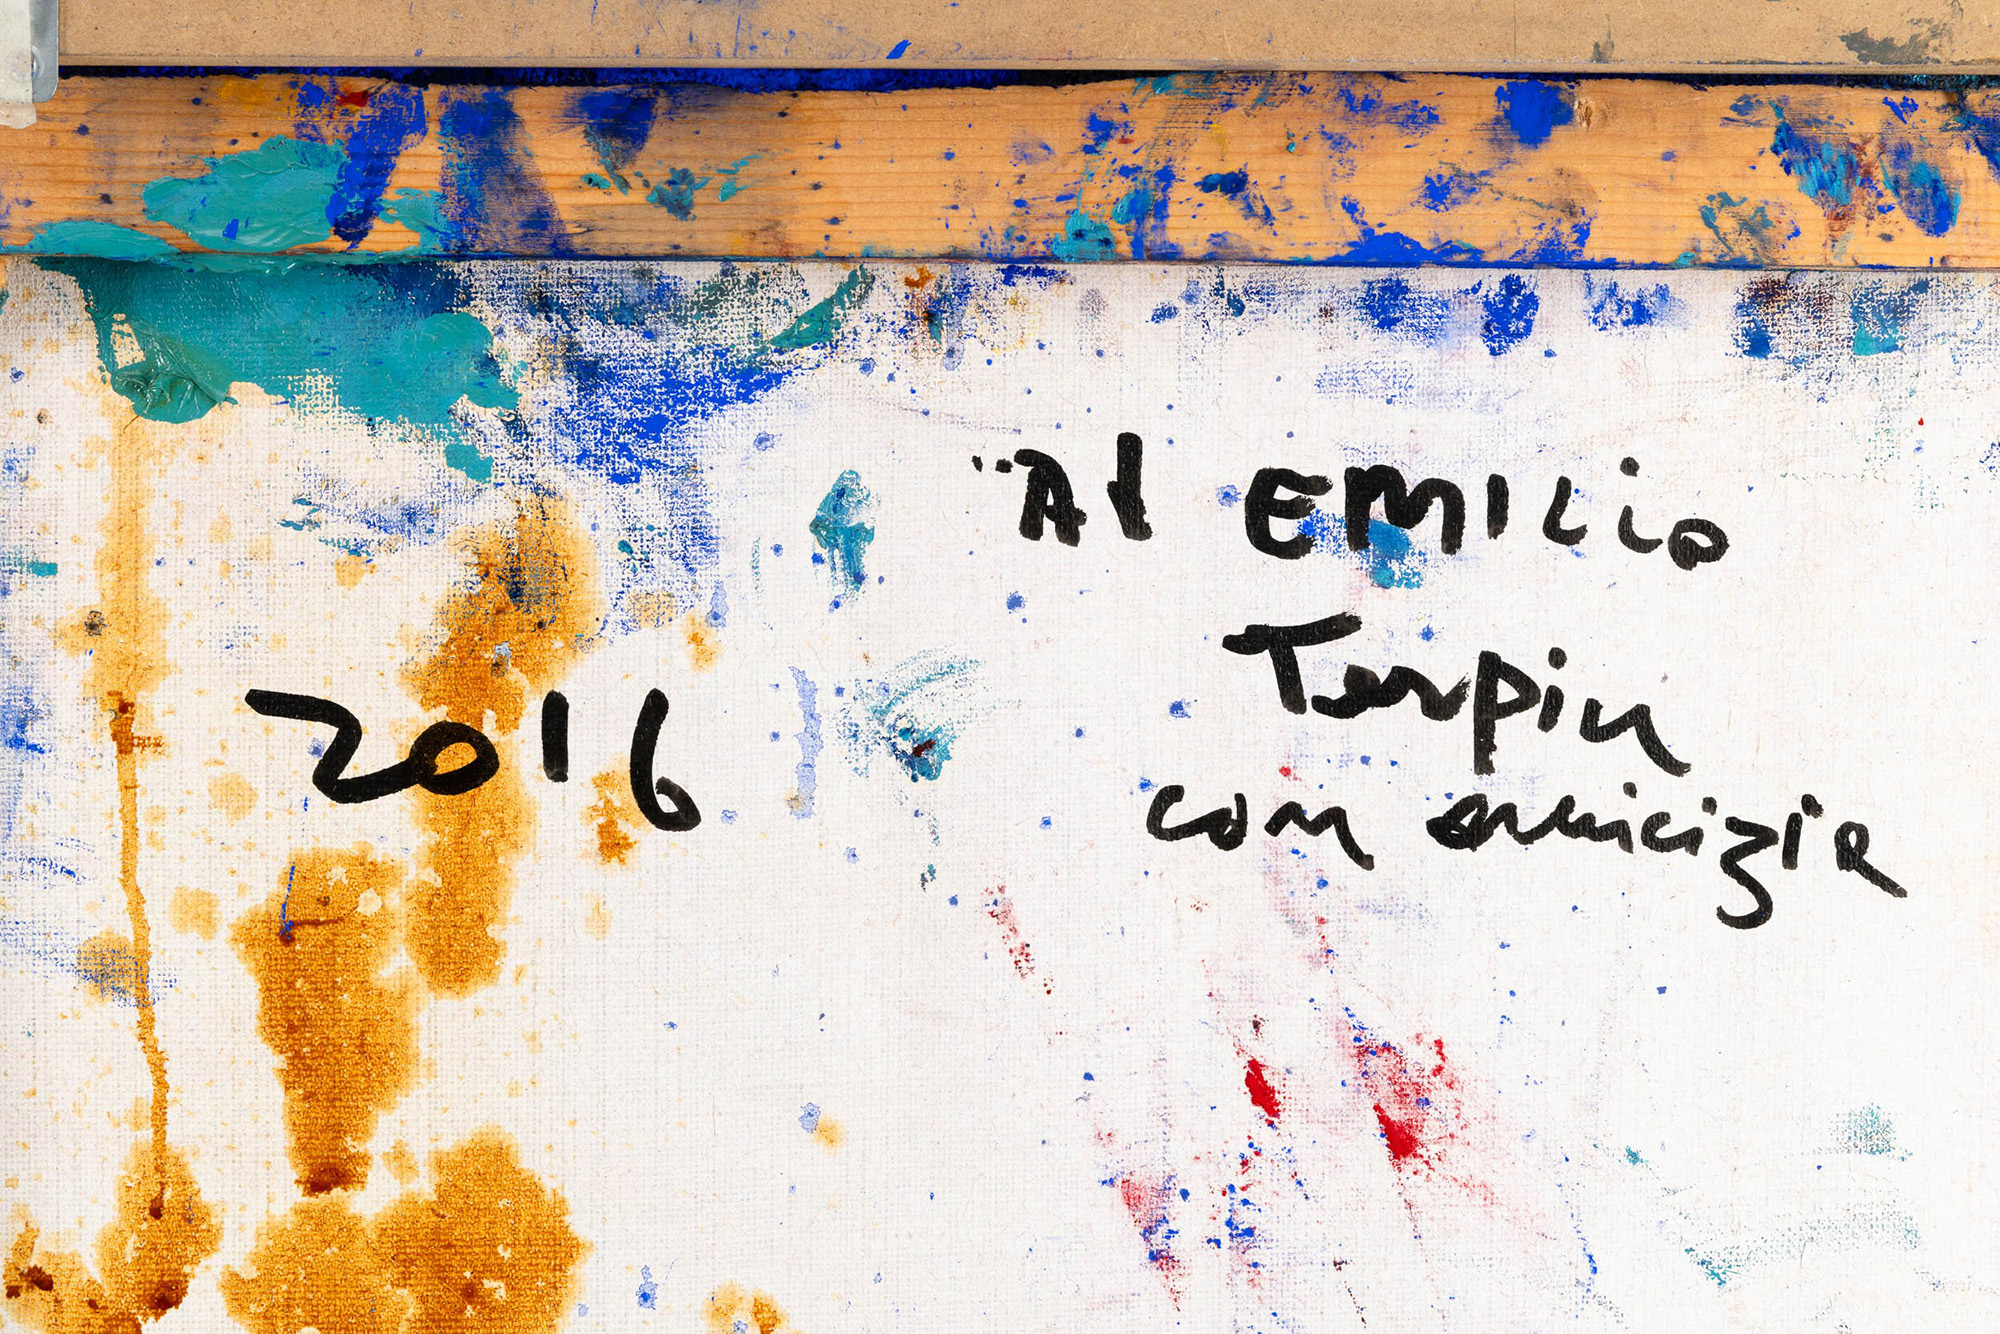 Al EMILio
Terpin
2016
con amicizia